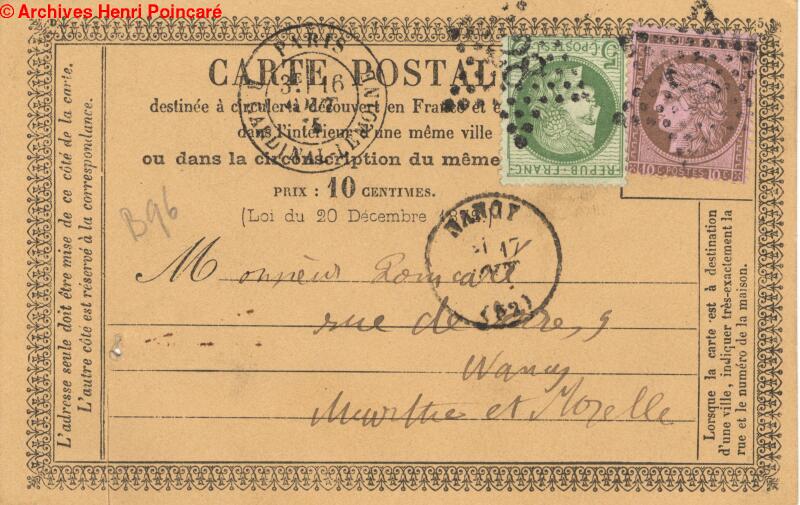 © Archives Henri Poincaré
CARTE POSTAL
destinée à circuler à découvert en France et
dans l'intérieur d'une même ville
ou dans la circonscription du même
PRIX : 10 CENTIMES.
(Loi du 20 Décembre 18
PARIS
16
R. CARDINAL-LEMOINE
5 C
POSTES
REPUB. FRANC.
10 C POSTES 10 C
NANCY
17
OCT
(52)
B96
Monsieur Poincaré
rue de Serre, 9
Nancy
Meurthe et Mozelle
L'adresse seule doit être mise de ce côté de la carte.
L'autre côté est réservé à la correspondance.
Lorsque la carte est à destination
d'une ville, indiquer très-exactement la
rue et le numéro de la maison.